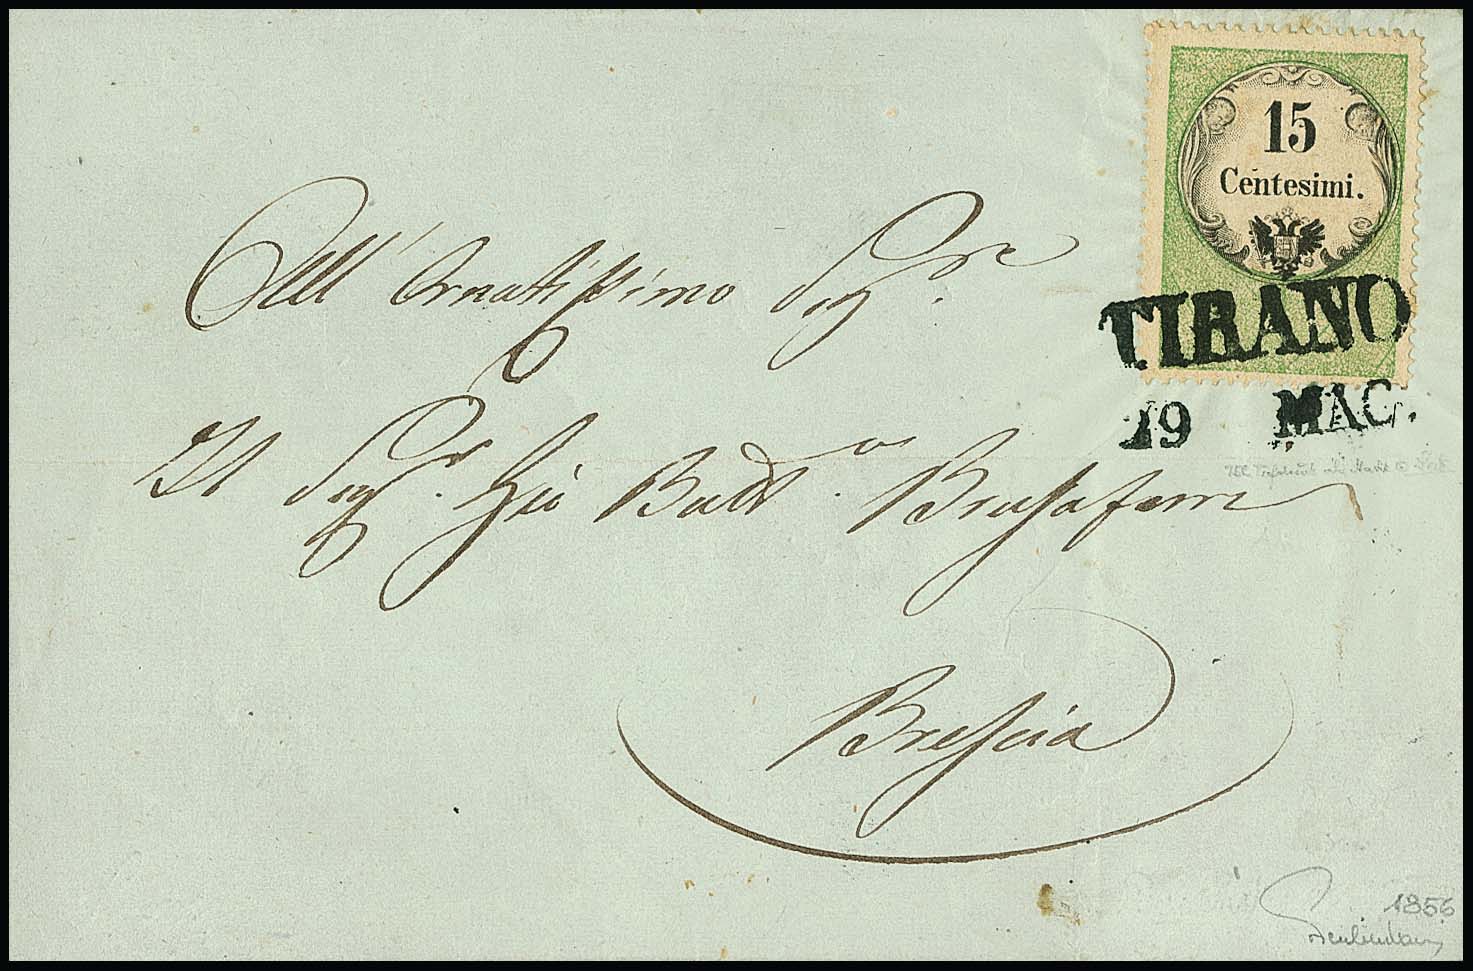 15
Centesimi.
TIRANO
19 MAG.
All' Ornatissimo Sigr.
Il Sigr. Gio Batt.
Brescia
1856